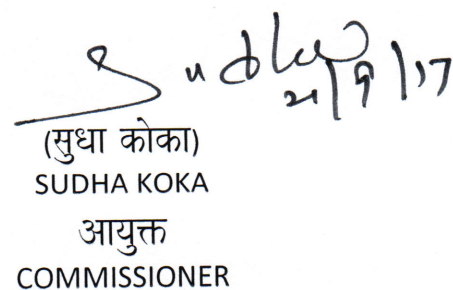 Sudha
21/9/17
(सुधा कोका)
SUDHA KOKA
आयुक्त
COMMISSIONER